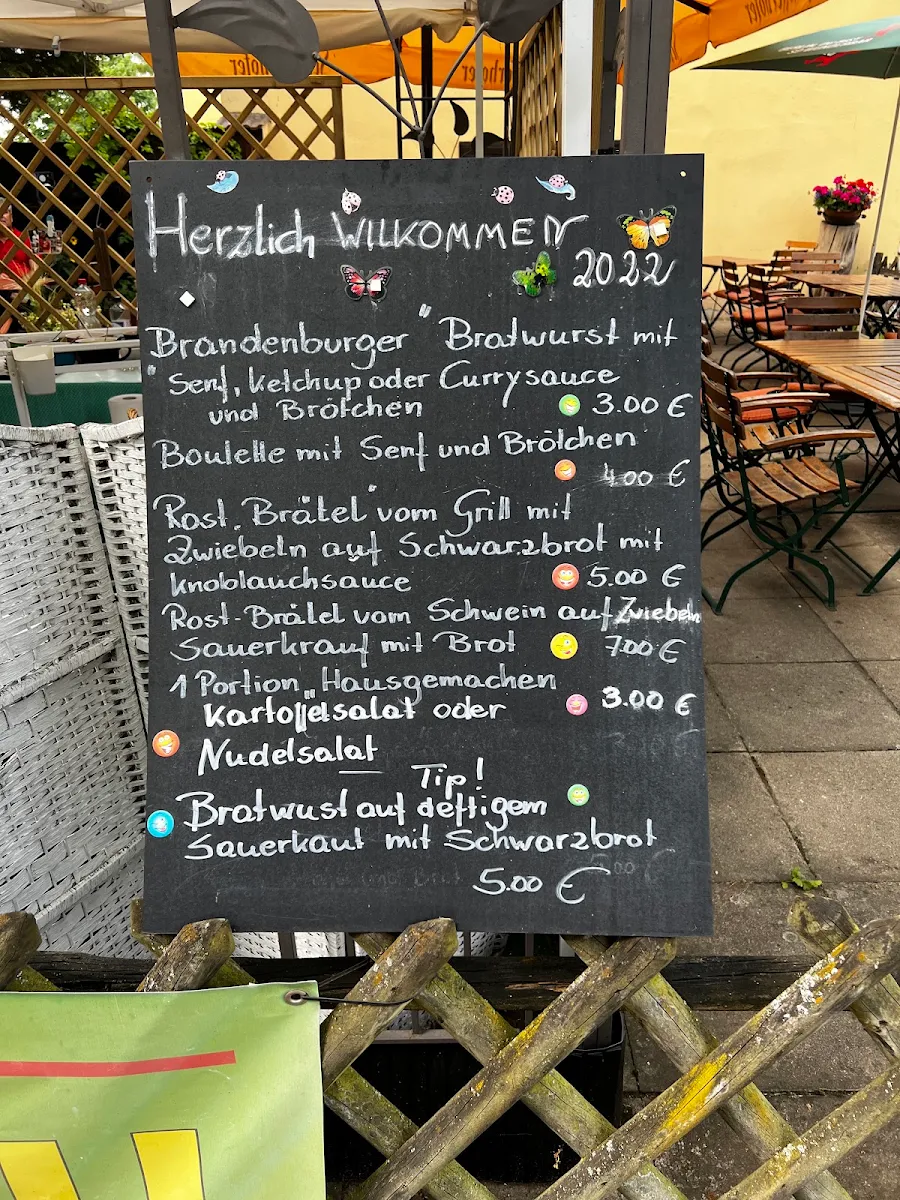 Herzlich WILKOMMEN
2022
Brandenburger" Bratwurst mit
"Senf, Ketchup oder Currysauce
und Brötchen 3.00 €
Boulette mit Senf und Brötchen
4.00 €
Rost „Brätel" vom Grill mit
Zwiebeln auf Schwarzbrot mit
Knoblauchsauce 5.00 €
Rost-Brätel vom Schwein auf Zwiebeln
Sauerkraut mit Brot 7.00 €
1 Portion „Hausgemachen"
Kartoffelsalat oder 3.00 €
Nudelsalat
Tip!
Bratwust auf deftigem
Sauerkaut mit Schwarzbrot
5.00 €